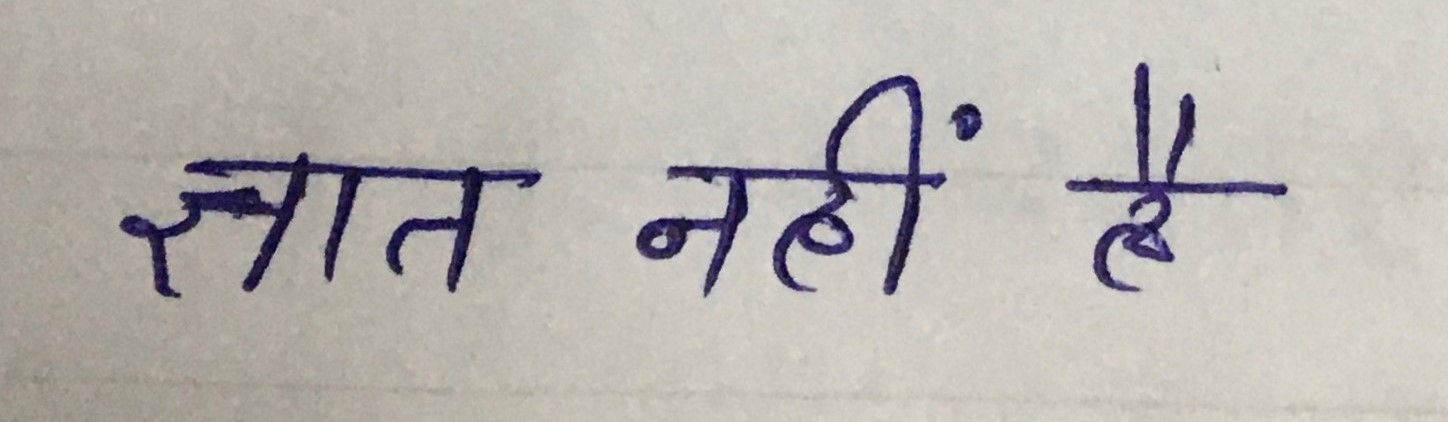 ज्ञात नहीं है